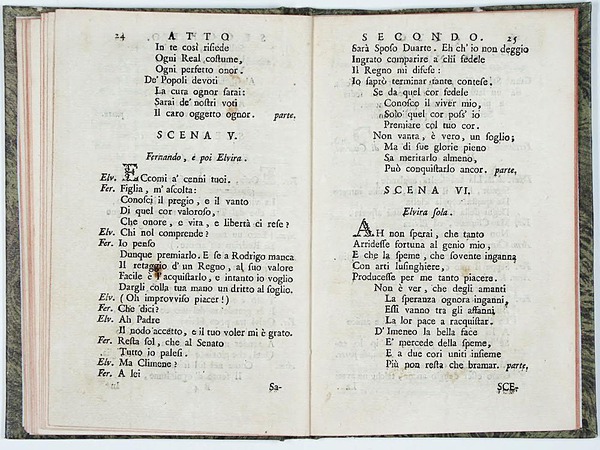 24 ATTO
In te così risiede
Ogni Real costume,
Ogni perfetto onor.
De' Popoli devoti
La cura ognor sarai:
Sarai de' nostri voti
Il caro oggetto ognor. parte.
SCENA V.
Fernando, e poi Elvira.
Elv. ECcomi a' cenni tuoi.
Fer. Figlia, m' ascolta:
Conosci il pregio, e il vanto
Di quel cor valoroso,
Che onore, e vita, e libertà ci rese?
Elv. Chi nol comprende?
Fer. Io penso
Dunque premiarlo. E se a Rodrigo manca
Il retaggio d' un Regno, al suo valore
Facile è l' acquistarlo, e intanto io voglio
Dargli colla tua mano un dritto al soglio.
Elv. (Oh improvviso piacer!)
Fer. Che dici?
Elv. Ah Padre
Il nodo accetto, e il tuo voler mi è grato.
Fer. Resta sol, che al Senato
Tutto io palesi.
Elv. Ma Climene?
Fer. A lei
Sa-
SECONDO. 25
Sarà Sposo Duarte. Eh ch' io non deggio
Ingrato comparire a chi fedele
Il Regno mi difese:
Io saprò terminar tante contese.
Se da quel cor fedele
Conosco il viver mio,
Solo quel cor poss' io
Premiare col tuo cor.
Non vanta, è vero, un soglio;
Ma di sue glorie pieno
Sa meritarlo almeno,
Può conquistarlo ancor. parte.
SCENA VI.
Elvira sola.
AH non sperai, che tanto
Arridesse fortuna al genio mio,
E che la speme, che sovente inganna
Con arti lusinghiere,
Producesse per me tanto piacere.
Non è ver, che degli amanti
La speranza ognora inganni,
Essi vanno tra gli affanni
La lor pace a racquistar.
D' Imeneo la bella face
E' mercede della speme,
E a due cori uniti insieme
Più non resta che bramar. parte.
SCE-